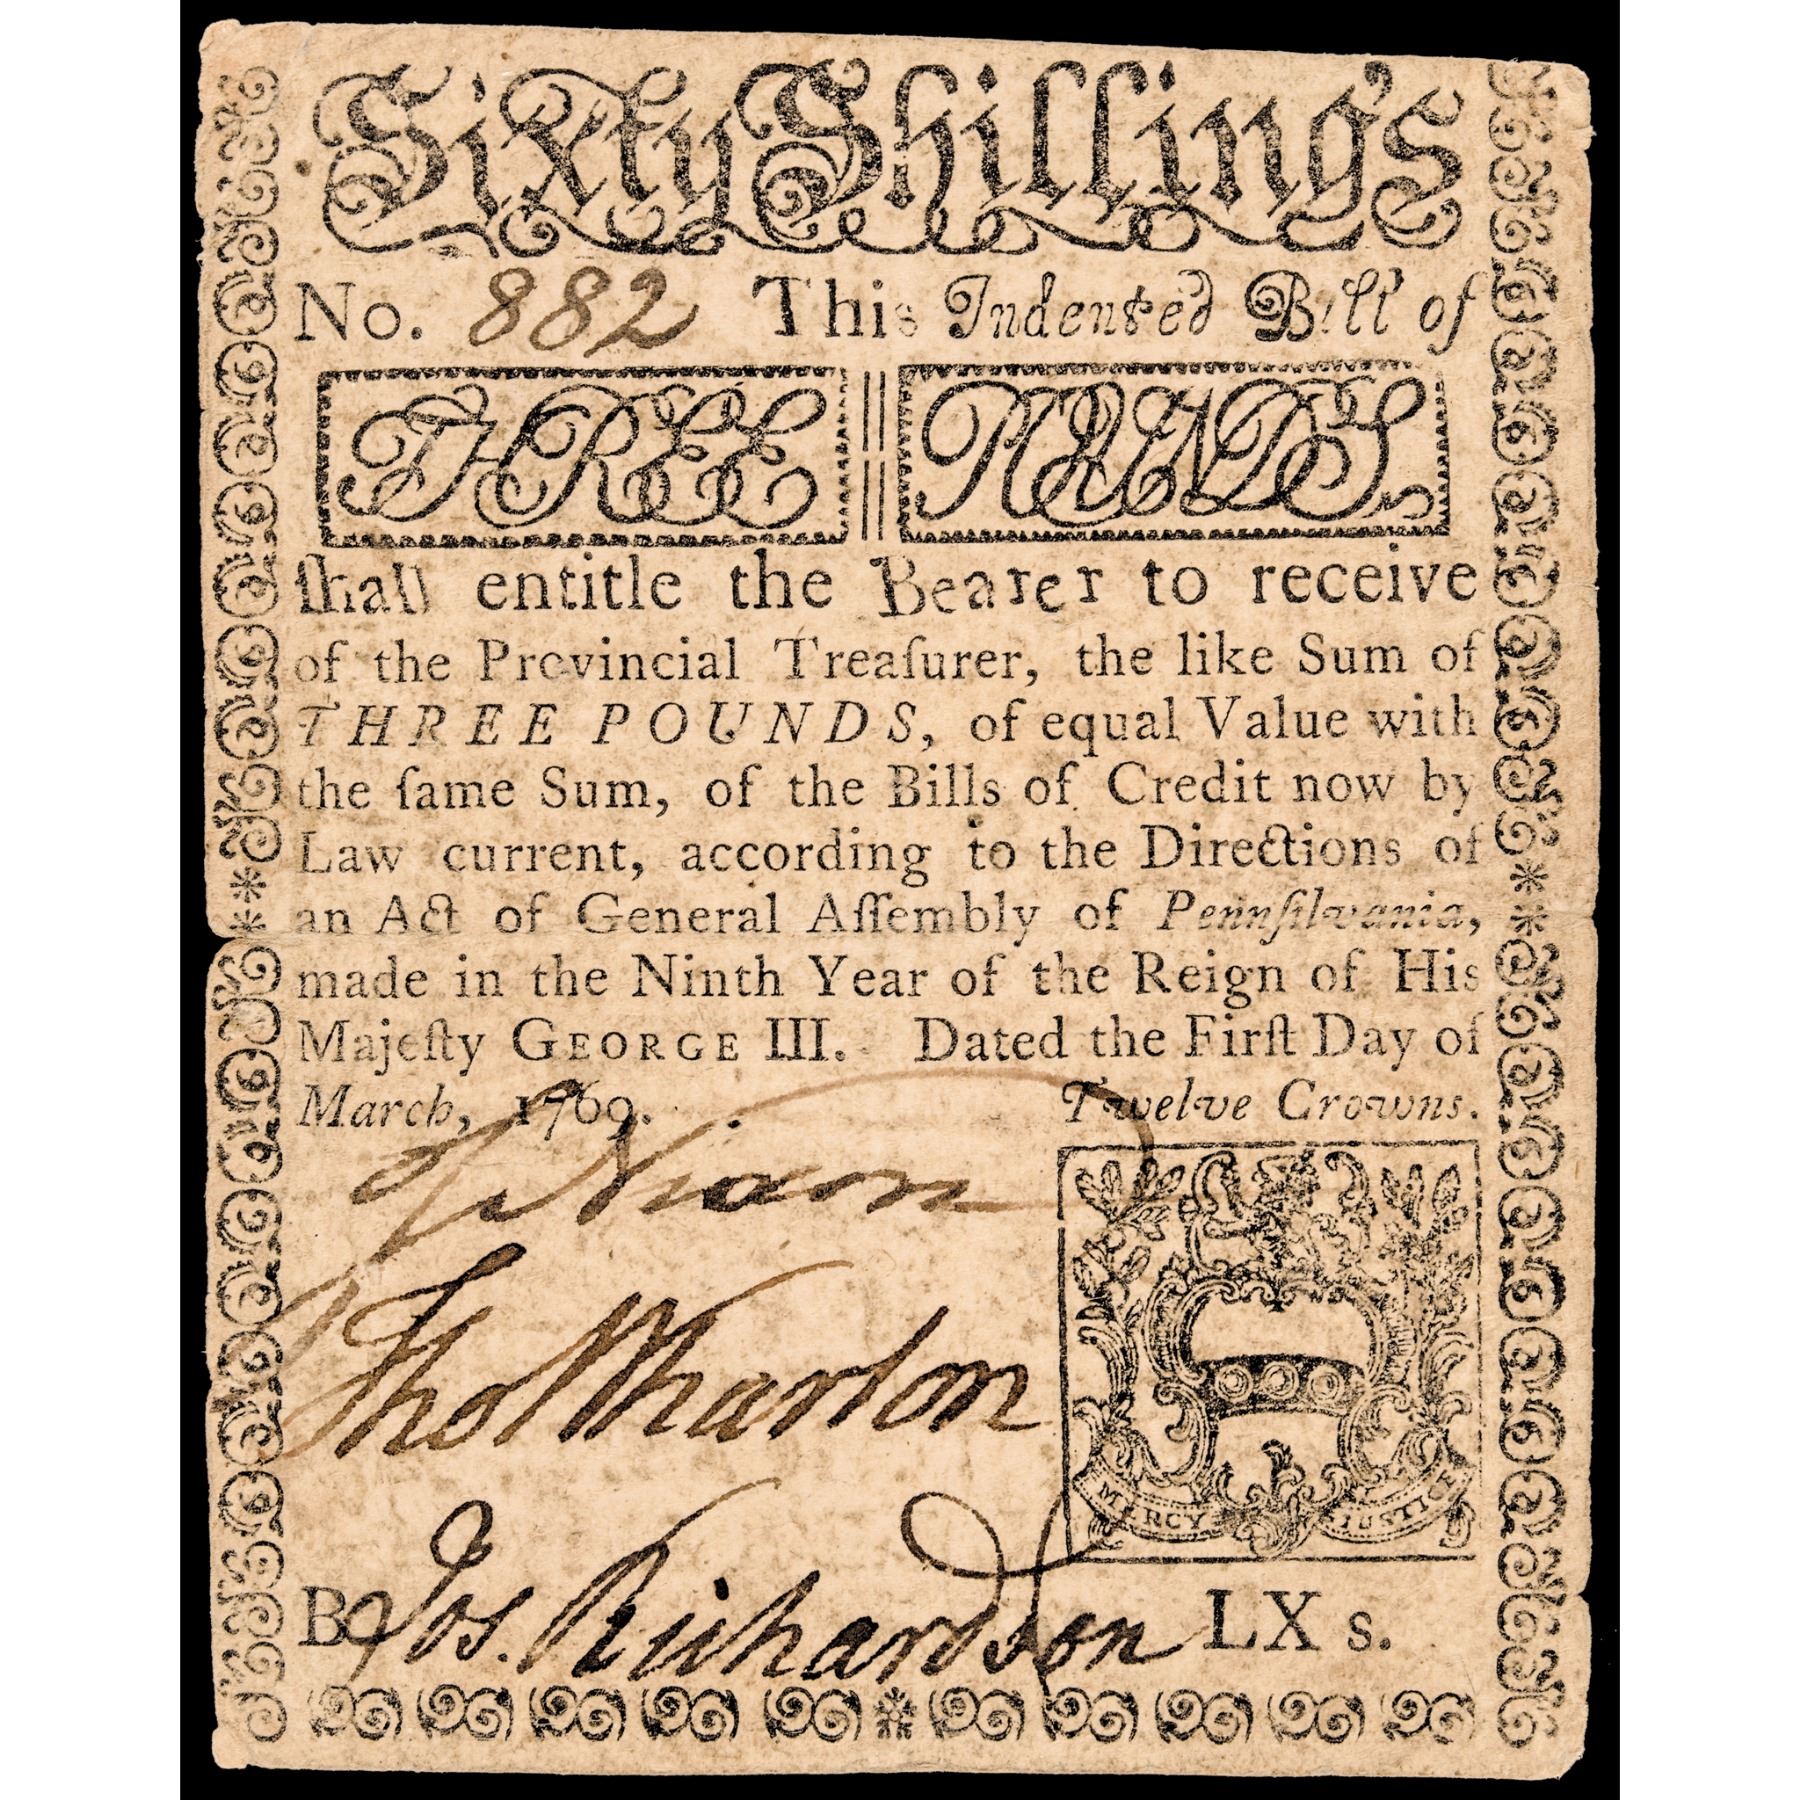 Sixty Shilling's
No. 882 This Indented Bill of
THREE POUNDS
ſhall entitle the Bearer to receive
of the Provincial Treaſurer, the like Sum of
THREE POUNDS, of equal Value with
the ſame Sum, of the Bills of Credit now by
Law current, according to the Directions of
an Act of General Aſſembly of Pennſilvania,
made in the Ninth Year of the Reign of His
Majeſty GEORGE III. Dated the Firſt Day of
March, 1769. Twelve Crowns.
Nixon
Tho Wharton
MERCY JUSTICE
B Jos. Richardson LX s.